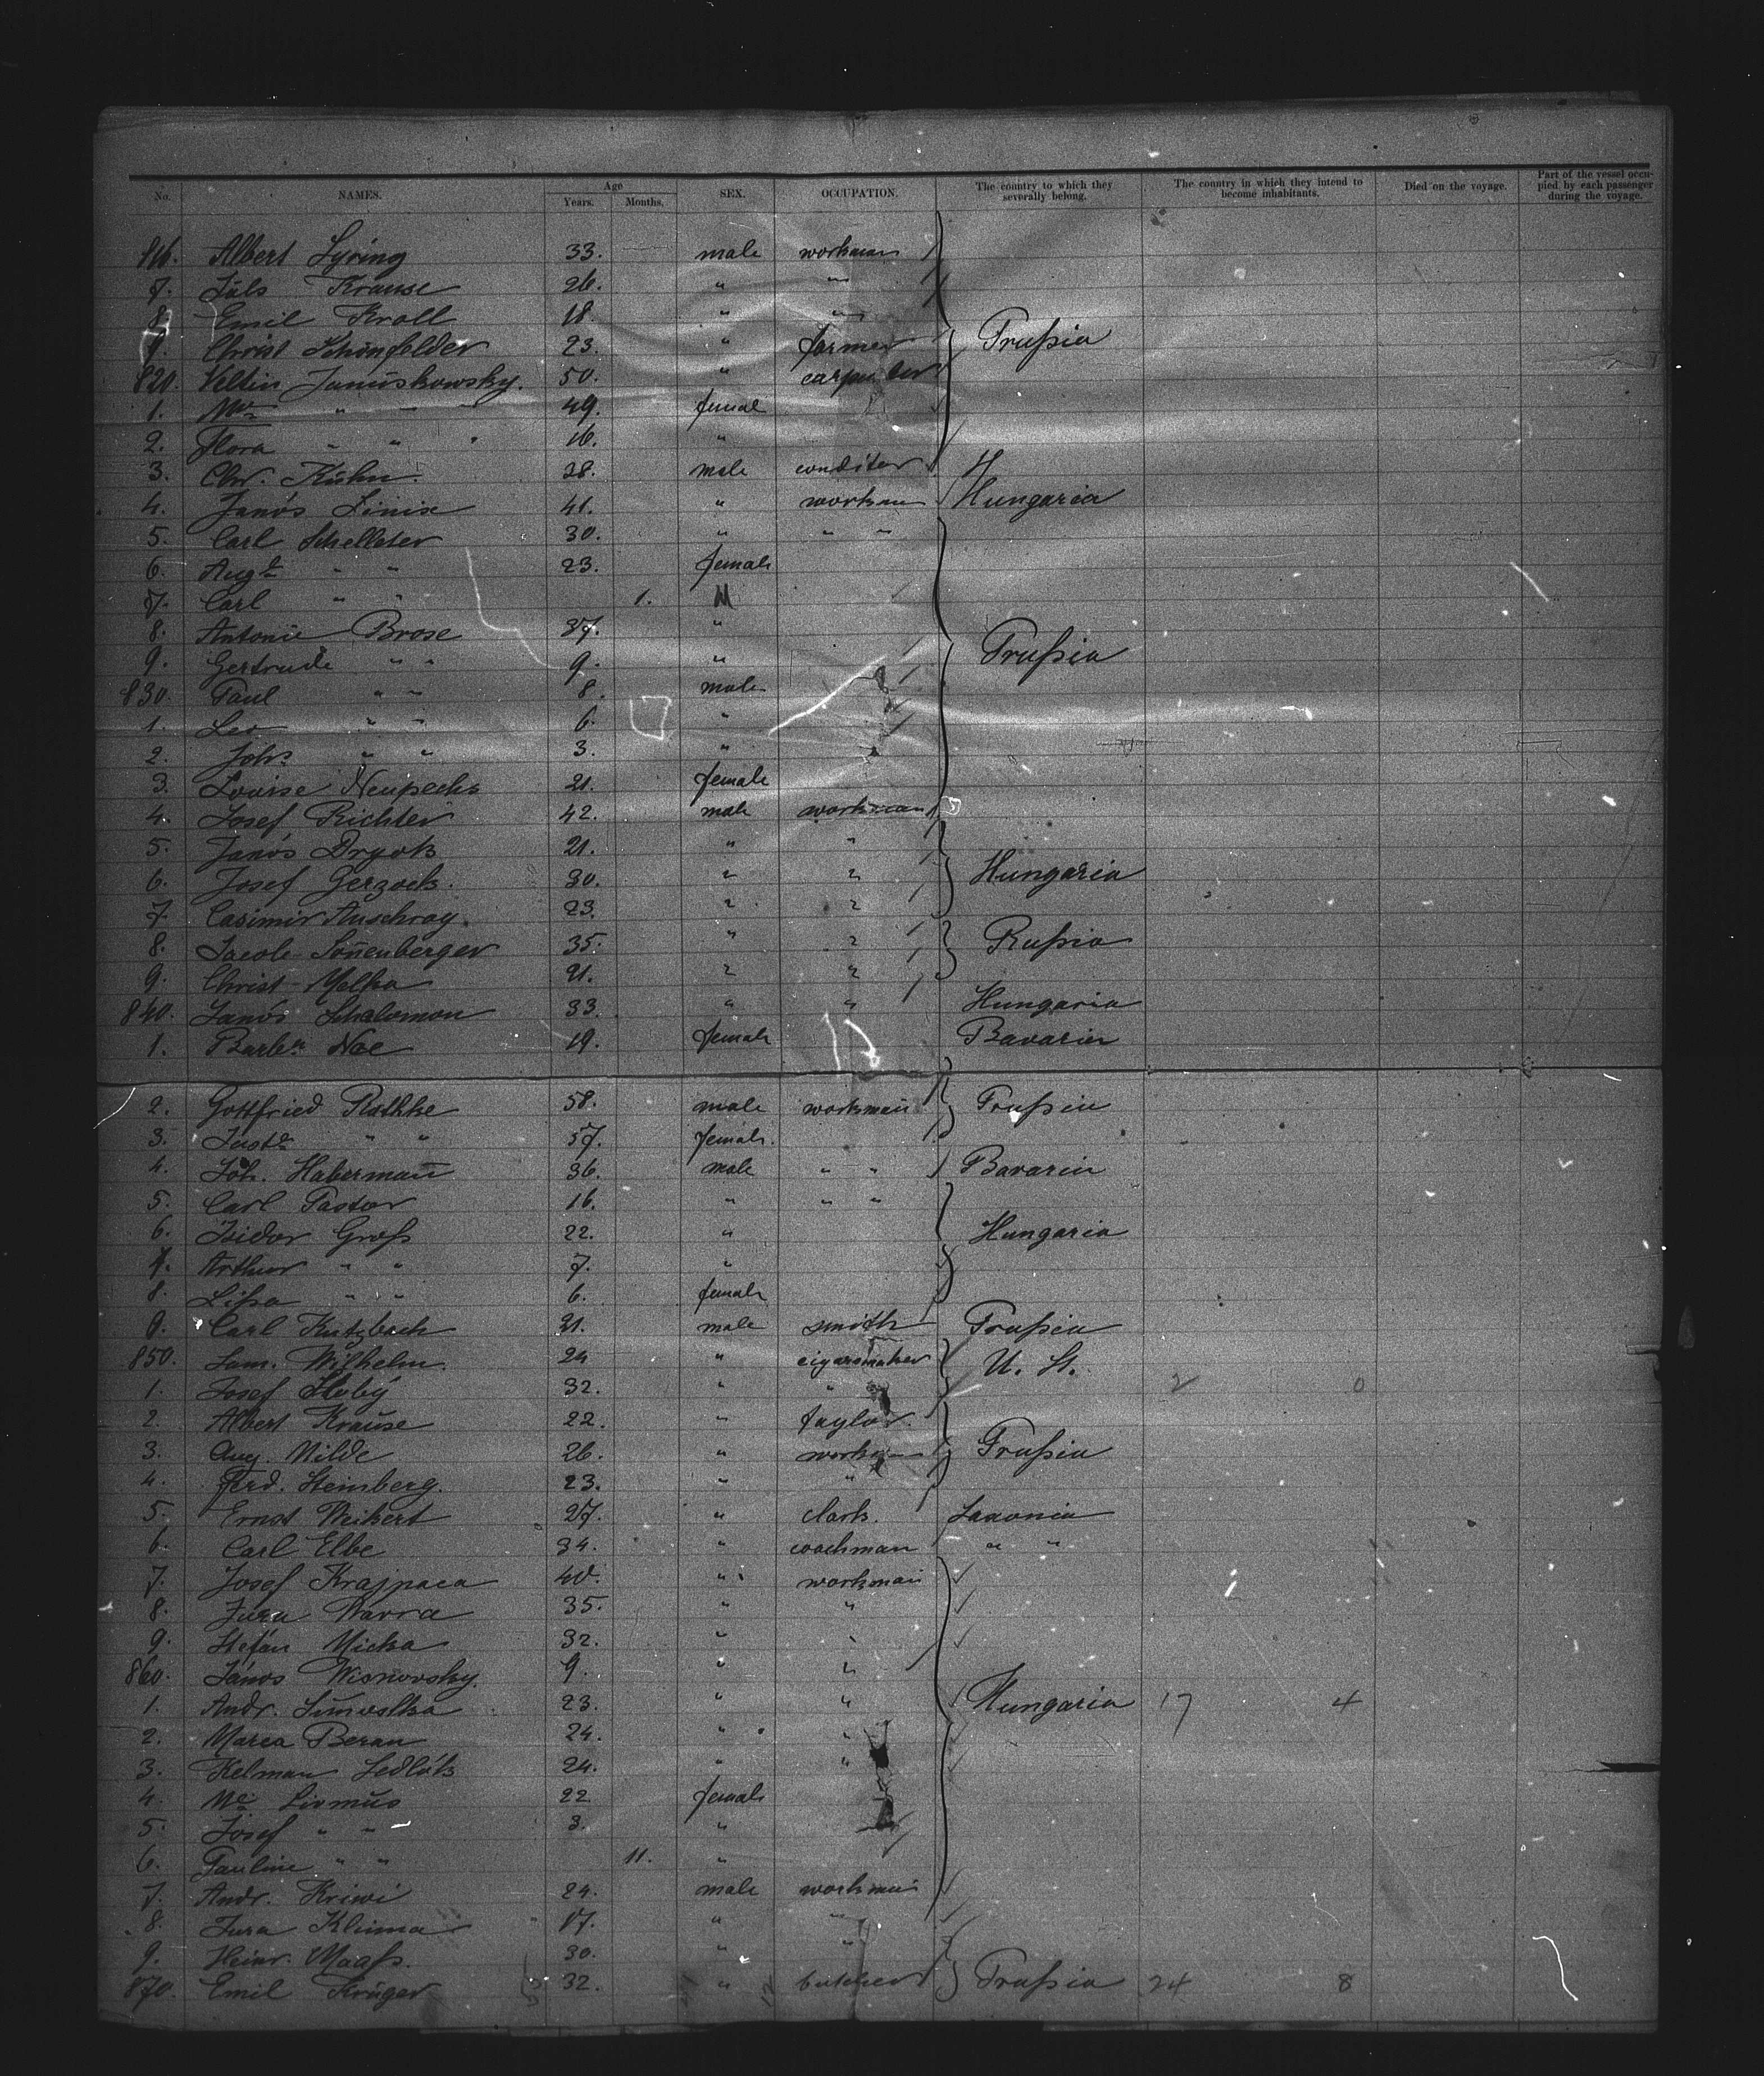 No. NAMES. Age Years. Months. SEX. OCCUPATION. The country to which they severally belong. The country in which they intend to become inhabitants. Died on the voyage. Part of the vessel occupied by each passenger during the voyage.
816. Albert Lyring 33. male workman
7. Juls Krause 26. " "
8. Emil Kroll 18. " "
9. Christ Schönfelder 23. " farmer Prußia
820. Veltin Januskowsky. 50. "
1. " " 49. femal
2. Flora " " 16. "
3. Chr. Kühn. 28. male conditor H
4. Janós Linix 41. " workman Hungaria
5. Carl Schellater 30. " " "
6. Augte " " 23. female
7. Carl " " 1. M
8. Antonie Brose 37. "
9. Gertrude " " 9. " Prußia
830. Paul " " 8. male
1. Leo " " 6. "
2. Johs " " 3. "
3. Louise 21. female
4. Josef Richter 42. male workman
5. Janós Dryok 21. " "
6. Josef Gerzock. 30. " " Hungaria
7. Casimir 23. " "
8. Jacob Sonenberger 35. " " Rußia
9. Christ Melka 21. " "
840. Janós Schalomon 33. " " Hungaria
1. Barba Noe 19. female Bavaria
2. Gottfried Rathke 58. male workman Prußia
3. Juste " " 57. female.
4. Joh. Haberman 36. male " " Bavaria
5. Carl Pastor 16. " " "
6. Isidor Groß 22. " Hungaria
7. Arthur " " 7. "
8. Lißa " " 6. female
9. Carl Kutzbach 21. male smith Prußia
850. Sam. Wilhelm. 24 " cigarsmaker U. St.
1. Josef 32. " " 2 0
2. Albert Krause 22. " taylor.
3. Aug. Wilde 26. " workman Prußia
4. Ferd. Steinberg. 23. " "
5. Ernst Weikert 27. " clark. Saxonia
6. Carl Elbe 34. " coachman " "
7. Josef Krajpaca 40. " workman
8. Jura Warra 35. " "
9. Stefán Micka 32. "
860. János Wisnovsky. 9. " "
1. Andr. 23. " " Hungaria 17 4
2. Marca Beran 24. " "
3. Kelman Sedlák 24. " "
4. 22 female
5. Josef " " 3. "
6. Pauline " " 11. "
7. Andr. Kriwi 24. male workman
8. Jura Klima 17. " "
9. Heinr. Maaß. 30. " "
870. Emil Krüger 32. " butcher Prußia 24 8